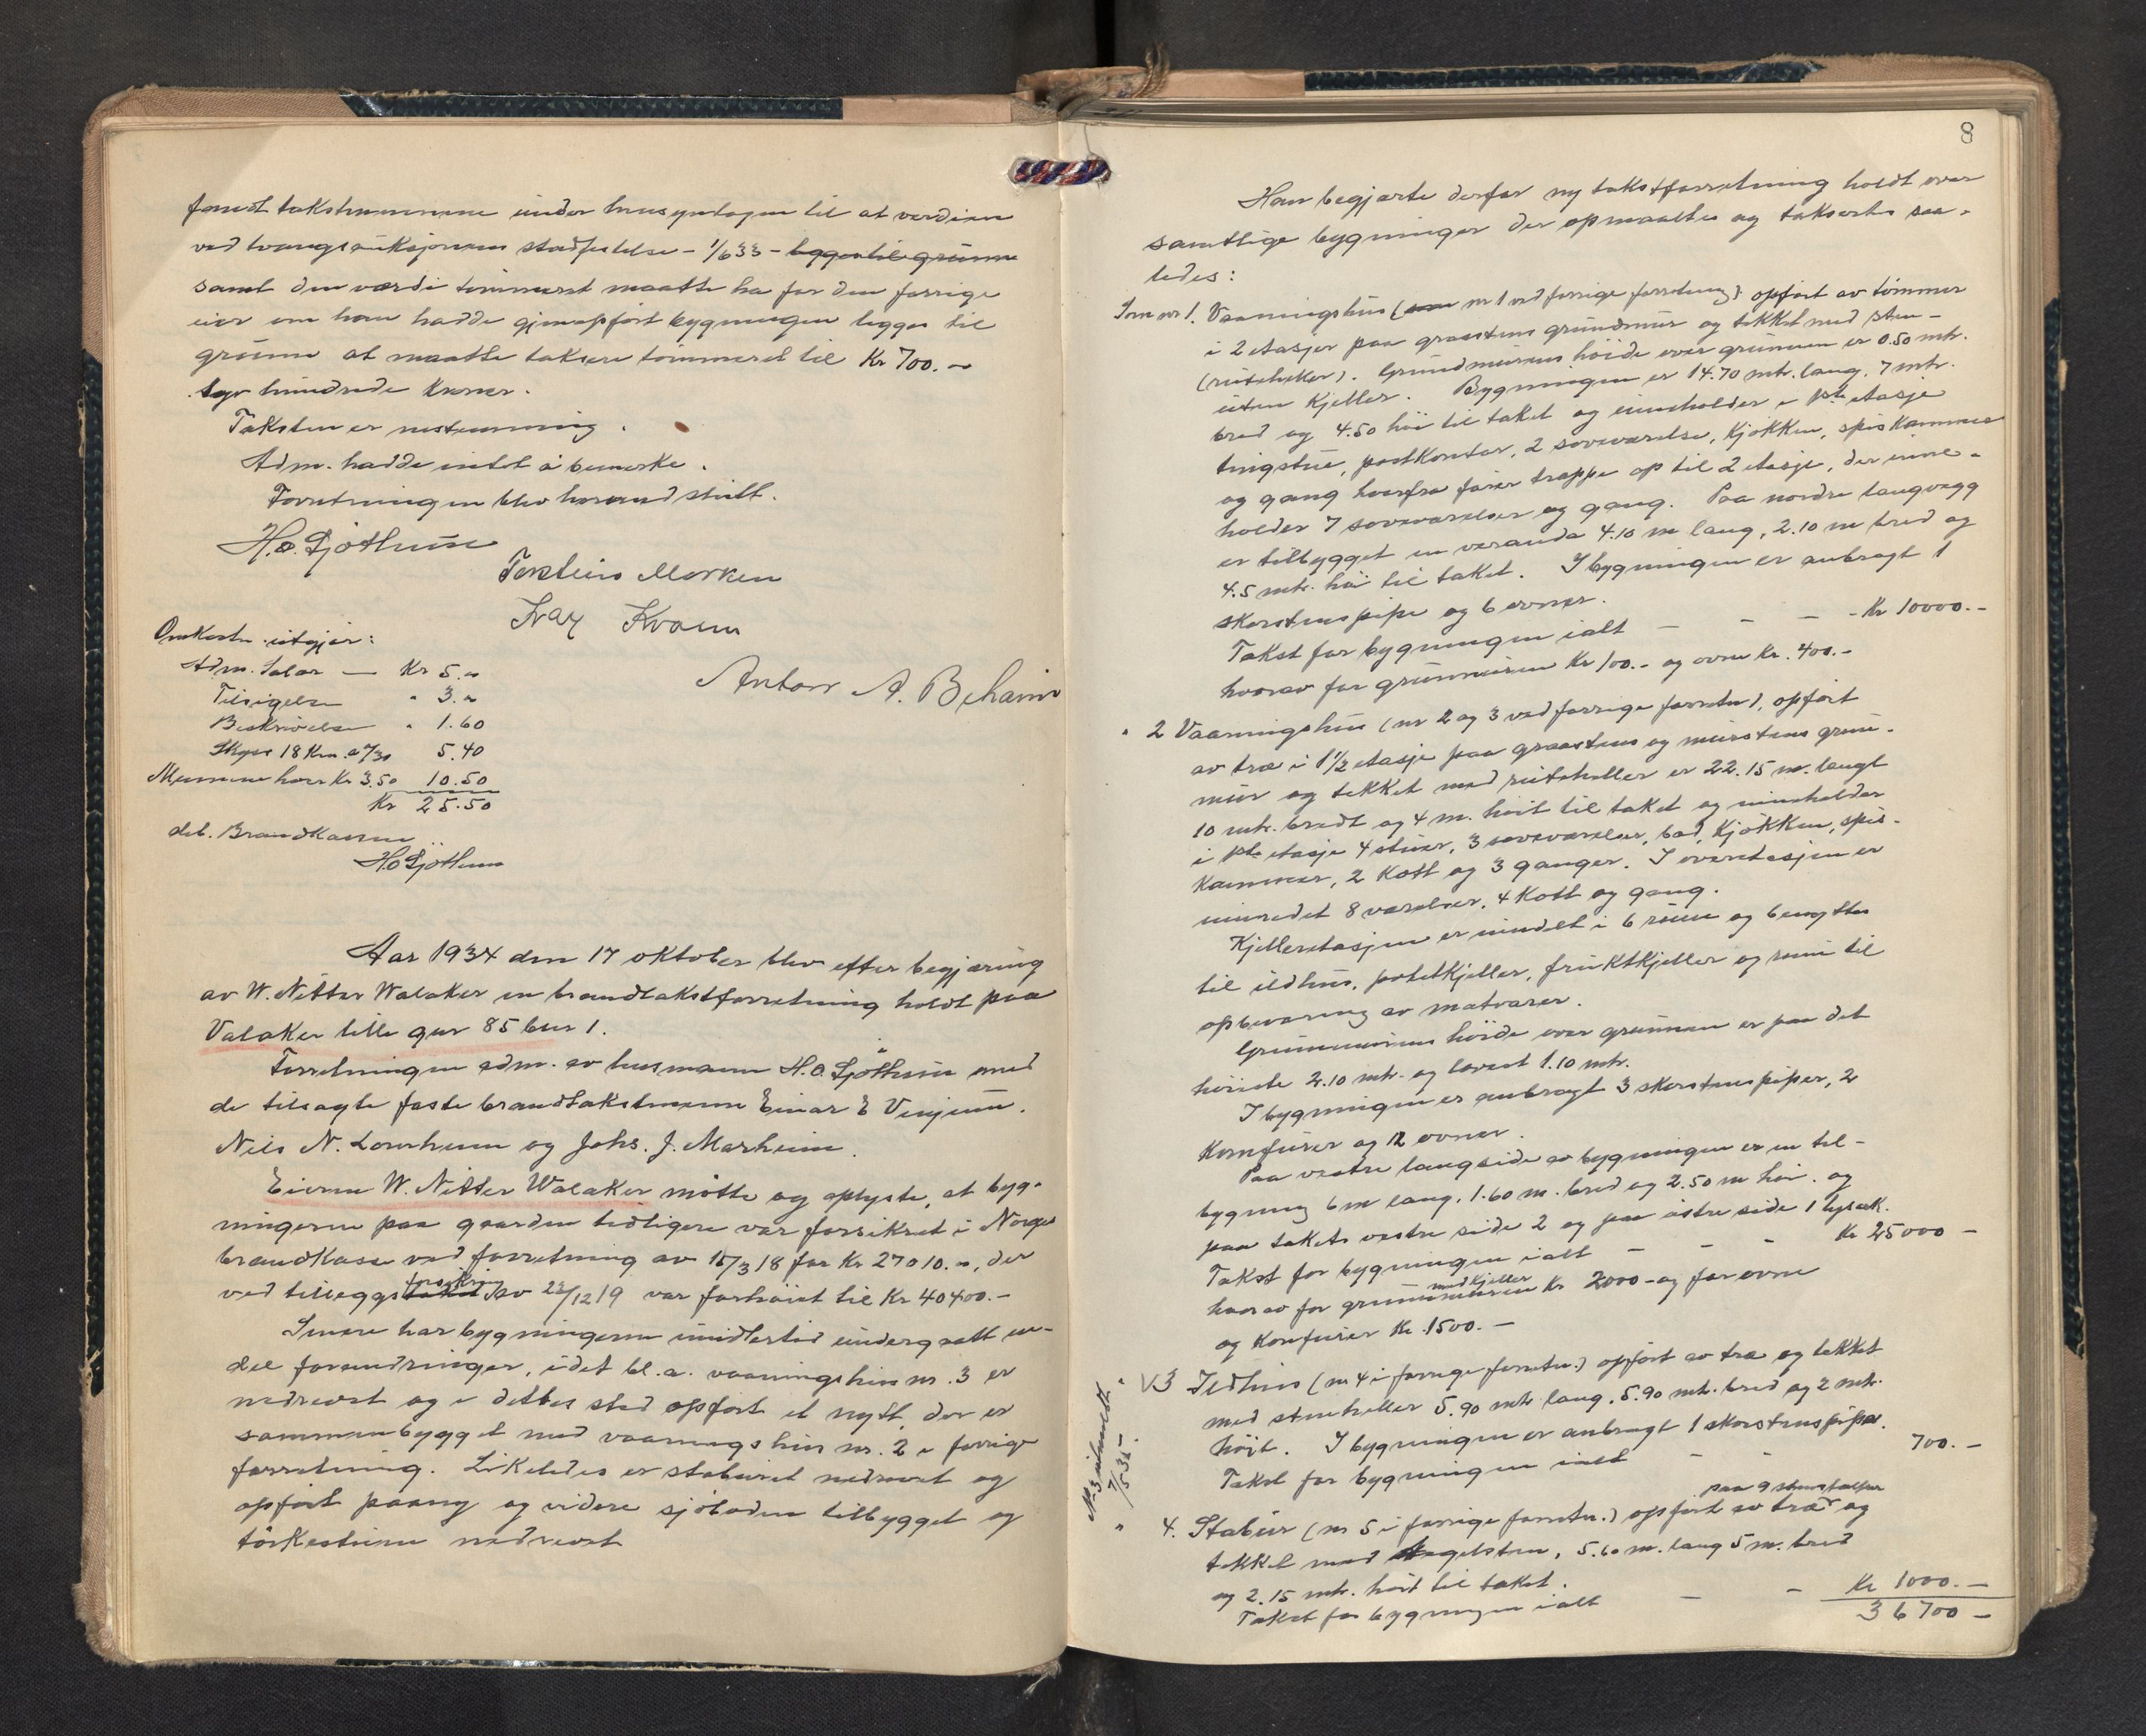 fandt takstmennene under hensyntagen til at verdien
ved tvangsauksjonens stadfestelse - 1/6 33 - legges til grunn
samt den værdi tømmeret maatte ha for den forrige
eier om han hadde gjenopført bygningen legges til
grunn at maatte taksere tømmeret til Kr 700.-
syv hundrede Kroner.
Taksten er enstemmig.
Adm. hadde intet å bemerke.
Forretningen blev herved slutt.
H.O. Sjøthun
Torstein Morken
Ivar Kvam
Anton A. Beheim
Omkostn. utgjør:
Adm. Salær — Kr 5.-
Tilsigelse " 3.-
Beskrivelse " 1.60
Skyss 18 Km. a /30 5.40
Mennene hver Kr 3.50 10.50
Kr 25.50
deb. Brandkassen
H.O Sjøthun
Aar 1934 den 17 oktober blev efter begjæring
av W. Nitter Walaker en brandtakstforretning holdt paa
Valaker lille gnr 85 bnr 1.
Forretningen adm. av lensmann H.O. Sjøthun med
de tilsagte faste brandtakstmenn Einar E Venjum.
Nils N. Lourheim og Johs. J. Marheim.
Eieren W. Nitter Walaker møtte og oplyste, at byg-
ningerne paa gaarden tidligere var forsikret i Norges
brandkasse ved forretning av 15/3 18 for Kr 27010.-, der
forsikring
ved tilleggstakst av 23/12 19 var forhøiet til Kr 40400.-
Senere har bygningerne imidlertid undergaatt en-
del forandringer, idet bl.a. vaaningshus nr. 3 er
nedrevet og i dettes sted opført et nytt, der er
sammenbygget med vaaningshus nr. 2 i forrige
forretning. Likeledes er staburet nedrevet og
opført paany og videre sjøboden tilbygget og
tørkestuen nedrevet
8
Han begjærte derfor ny takstforretning holdt over
samtlige bygninger der opmaaltes og taksertes saa-
ledes:
Som nr 1. Vaaningshus (som nr 1 ved forrige forretning) opført av tømmer
i 2 etasjer paa graastens grundmur og tekket med sten-
(ruteheller). Grundmurens høide over grunnen er 0.50 mtr.
uten Kjeller. Bygningen er 14.70 mtr. lang, 7 mtr.
bred og 4.50 høi til taket og inneholder i 1ste etasje
tingstue, postkontor, 2 soveværelse, Kjøkken, spiskammer
og gang hvorfra fører trappe op til 2 etasje, der inne-
holder 7 soveværelser og gang. Paa nordre langvegg
er tilbygget en veranda 4.10 m lang, 2.10 m bred og
4.5 mtr. høi til taket. I bygningen er anbragt 1
skorstenspipe og 6 ovner.
Takst for bygningen ialt — — — Kr 10000.-
hvorav for grunnmuren Kr 100.- og ovne Kr. 400.-
" 2 Vaaningshus (nr 2 og 3 ved forrige forretn), opført
av træ i 1½ etasje paa graastens og murstens grun-
mur og tekket med ruteheller er 22.15 m. langt
10 mtr. bredt og 4 m. høit til taket og inneholder
i 1ste etasje 4 stuer, 3 soveværelser, bad, Kjøkken, spis-
Kammer, 2 Kott og 3 ganger. I overetasjen er
innredet 8 værelser, 4 Kott og gang.
Kjelleretasjen er inndelt i 6 rum og benyttes
til ildhus, potetkjeller, fruktkjeller og rum til
opbevaring av matvarer.
Grunnmurens høide over grunnen er paa det
høieste 2.10 mtr. og lavest 1.10 mtr.
I bygningen er anbragt 3 skorstenspiper, 2
Komfurer og 12 ovner.
Paa vestre langside av bygningen er en til-
bygning 6 m lang, 1.60 m. bred og 2.50 m høi. og
paa takets vestre side 2 og paa østre side 1 lysark.
Takst for bygningen ialt — — — Kr 25000 -
med kjeller
hvorav for grunnmuren Kr 2000 - og for ovne
og Komfurer Kr. 1500.-
V 3 Ildhus (nr 4 i forrige forretn.) opført av træ og tekket
med steneheller 5.90 mtr lang, 5.90 mtr. bred og 2 mtr.
højt. I bygningen er anbragt 1 skorstenspipe.
Takst for bygningen ialt — — 700.-
" Nr 3 utmeldt "
" 7/5 35 -
paa 9 stenstolper
4. Stabur (nr 5 i forrige forretn.) opført av træ og
tekket med tegelsten, 5.60 m. lang 5 m. bred
og 2.15 mtr. høit til taket.
Takst for bygningen ialt — — Kr 1000.-
36700 -